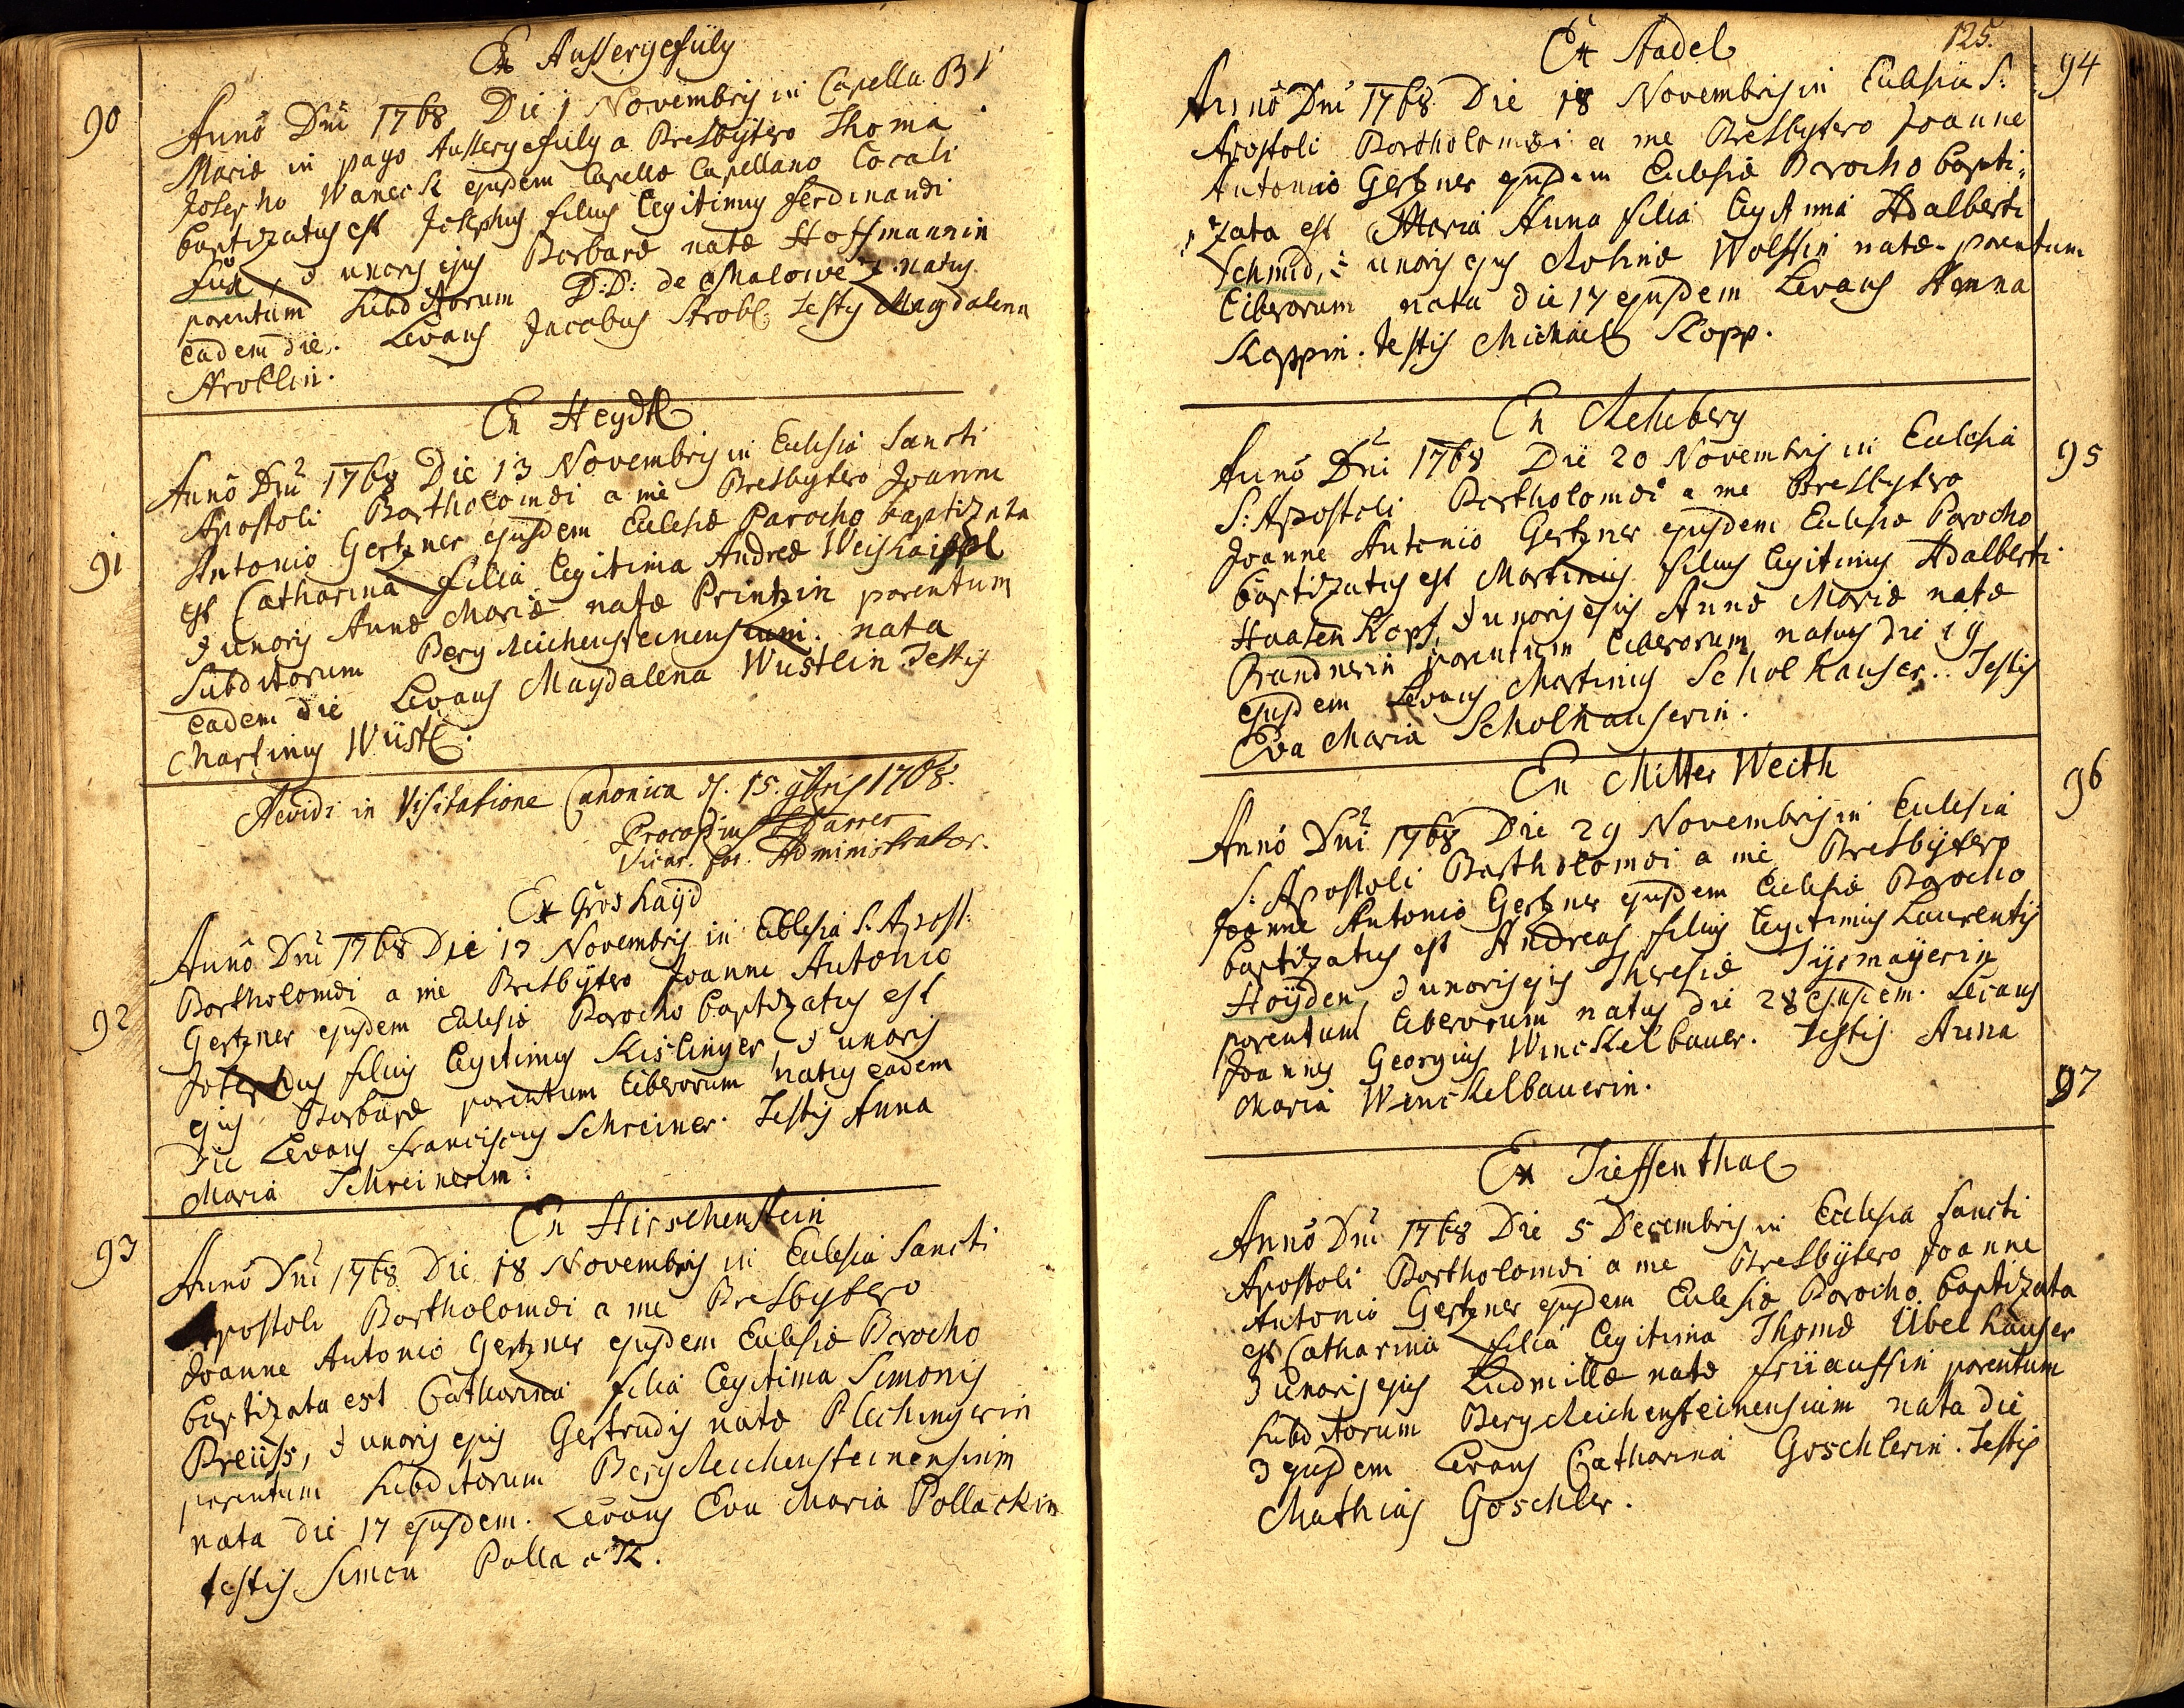 Ex Aussergefüly
90
Anno Dni 1768 Die 1 Novembris in Capella B V
Mariæ in pago Aussergefuly a Presbytero Thoma
Josepho Waneck ejusdem Capellæ Capellano Locali
baptizatus est Josephus filius legitimus Ferdinandi
Fux, & uxoris ejus Barbaræ natæ Hoffmannin
parentum Subditorum D: D: de Malowez. natus
eadem die. Levans Jacobus Strobl Testis Magdalena
Stroblin.
Ex Heydl
91
Anno Dni 1768 Die 13 Novembris in Ecclesia Sancti
Apostoli Bartholomæi a me Presbytero Joanne
Antonio Gertzner ejusdem Ecclesiæ Parocho baptizata
est Catharina filia legitima Andreæ Weishaippl
& uxoris Annæ Mariæ natæ Printzin parentum
Subditorum Bergreichensteinensium. nata
eadem die Levans Magdalena Wustlin. Testis
Martinus Wüstl.
Revidi in Visitatione Canonica d. 15. 9bris 1768.
Procopius
Vicar. for. Administrator.
Ex Groshayd
92
Anno Dni 1768 Die 17 Novembris in Ecclesia S. Apost:
Bartholomæi a me Presbytero Joanne Antonio
Gertzner ejusdem Ecclesiæ Parocho baptizatus est
Josephus filius legitimus Kislinger, & uxoris
ejus Barbaræ parentum liberorum natus eadem
die Levans Franciscus Schreiner. Testis Anna
Maria Schreinerin.
Ex Hirschenstein
93
Anno Dni 1768 Die 18 Novembris in Ecclesia Sancti
Apostoli Bartholomæi a me Presbytero
Joanne Antonio Gertzner ejusdem Ecclesiæ Parocho
baptizata est Catharina filia legitima Simonis
Preüss, & uxoris ejus Gertrudis natæ Plechingerin
parentum Subditorum Bergreichensteinensium
nata die 17 ejusdem. Levans Eva Maria Pollackin
testis Simon Pollack.
125.
Ex Stadel
94
Anno Dni 1768 Die 18 Novembris in Ecclesia S:
Apostoli Bartholomæi a me Presbytero Joanne
Antonio Gertzner ejusdem Ecclesiæ Parocho bapti:
zata est Maria Anna filia legitima Adalberti
Schmid, & uxoris ejus Rosinæ Wolffin natæ parentum
liberorum nata die 17 ejusdem Levans Anna
Koppin. Testis Michael Kopp.
Ex Rehberg
95
Anno Dni 1768 Die 20 Novembris in Ecclesia
S: Apostoli Bartholomæi a me Presbytero
Joanne Antonio Gertzner ejusdem Ecclesiæ Parocho
baptizatus est Martinus filius legitimus Adalberti
Haasen Kopf, & uxoris ejus Annæ Mariæ natæ
Brandnerin parentum liberorum natus die 19
ejusdem Levans Martinus Scholhauser.. Testis
Eva Maria Scholhauserin.
Ex Mitter Weith
96
Anno Dni 1768 Die 29 Novembris in Ecclesia
S: Apostoli Bartholomæi a me Presbytero
Joanne Antonio Gertzner ejusdem Ecclesiæ Parocho
baptizatus est Andreas filius legitimus Laurentij
Hoÿden, & uxoris ejus Theresiæ
parentum liberorum natus die 28 ejusdem. Levans
Joannes Georgius Winckelbauer. Testis Anna
Maria Winckelbauerin.
97
Ex Tieffenthal
Anno Dni 1768 Die 5 Decembris in Ecclesia Sancti
Apostoli Bartholomæi a me Presbytero Joanne
Antonio Gertzner ejusdem Ecclesiæ Parocho baptizata
est Catharina filia legitima Thomæ Übelhauser
& uxoris ejus Ludmillæ natæ Früauffin parentum
Subditorum Bergreichensteinensium nata die
3 ejusdem Levans Catharina Goschlerin. Testis
Mathias Goschler.